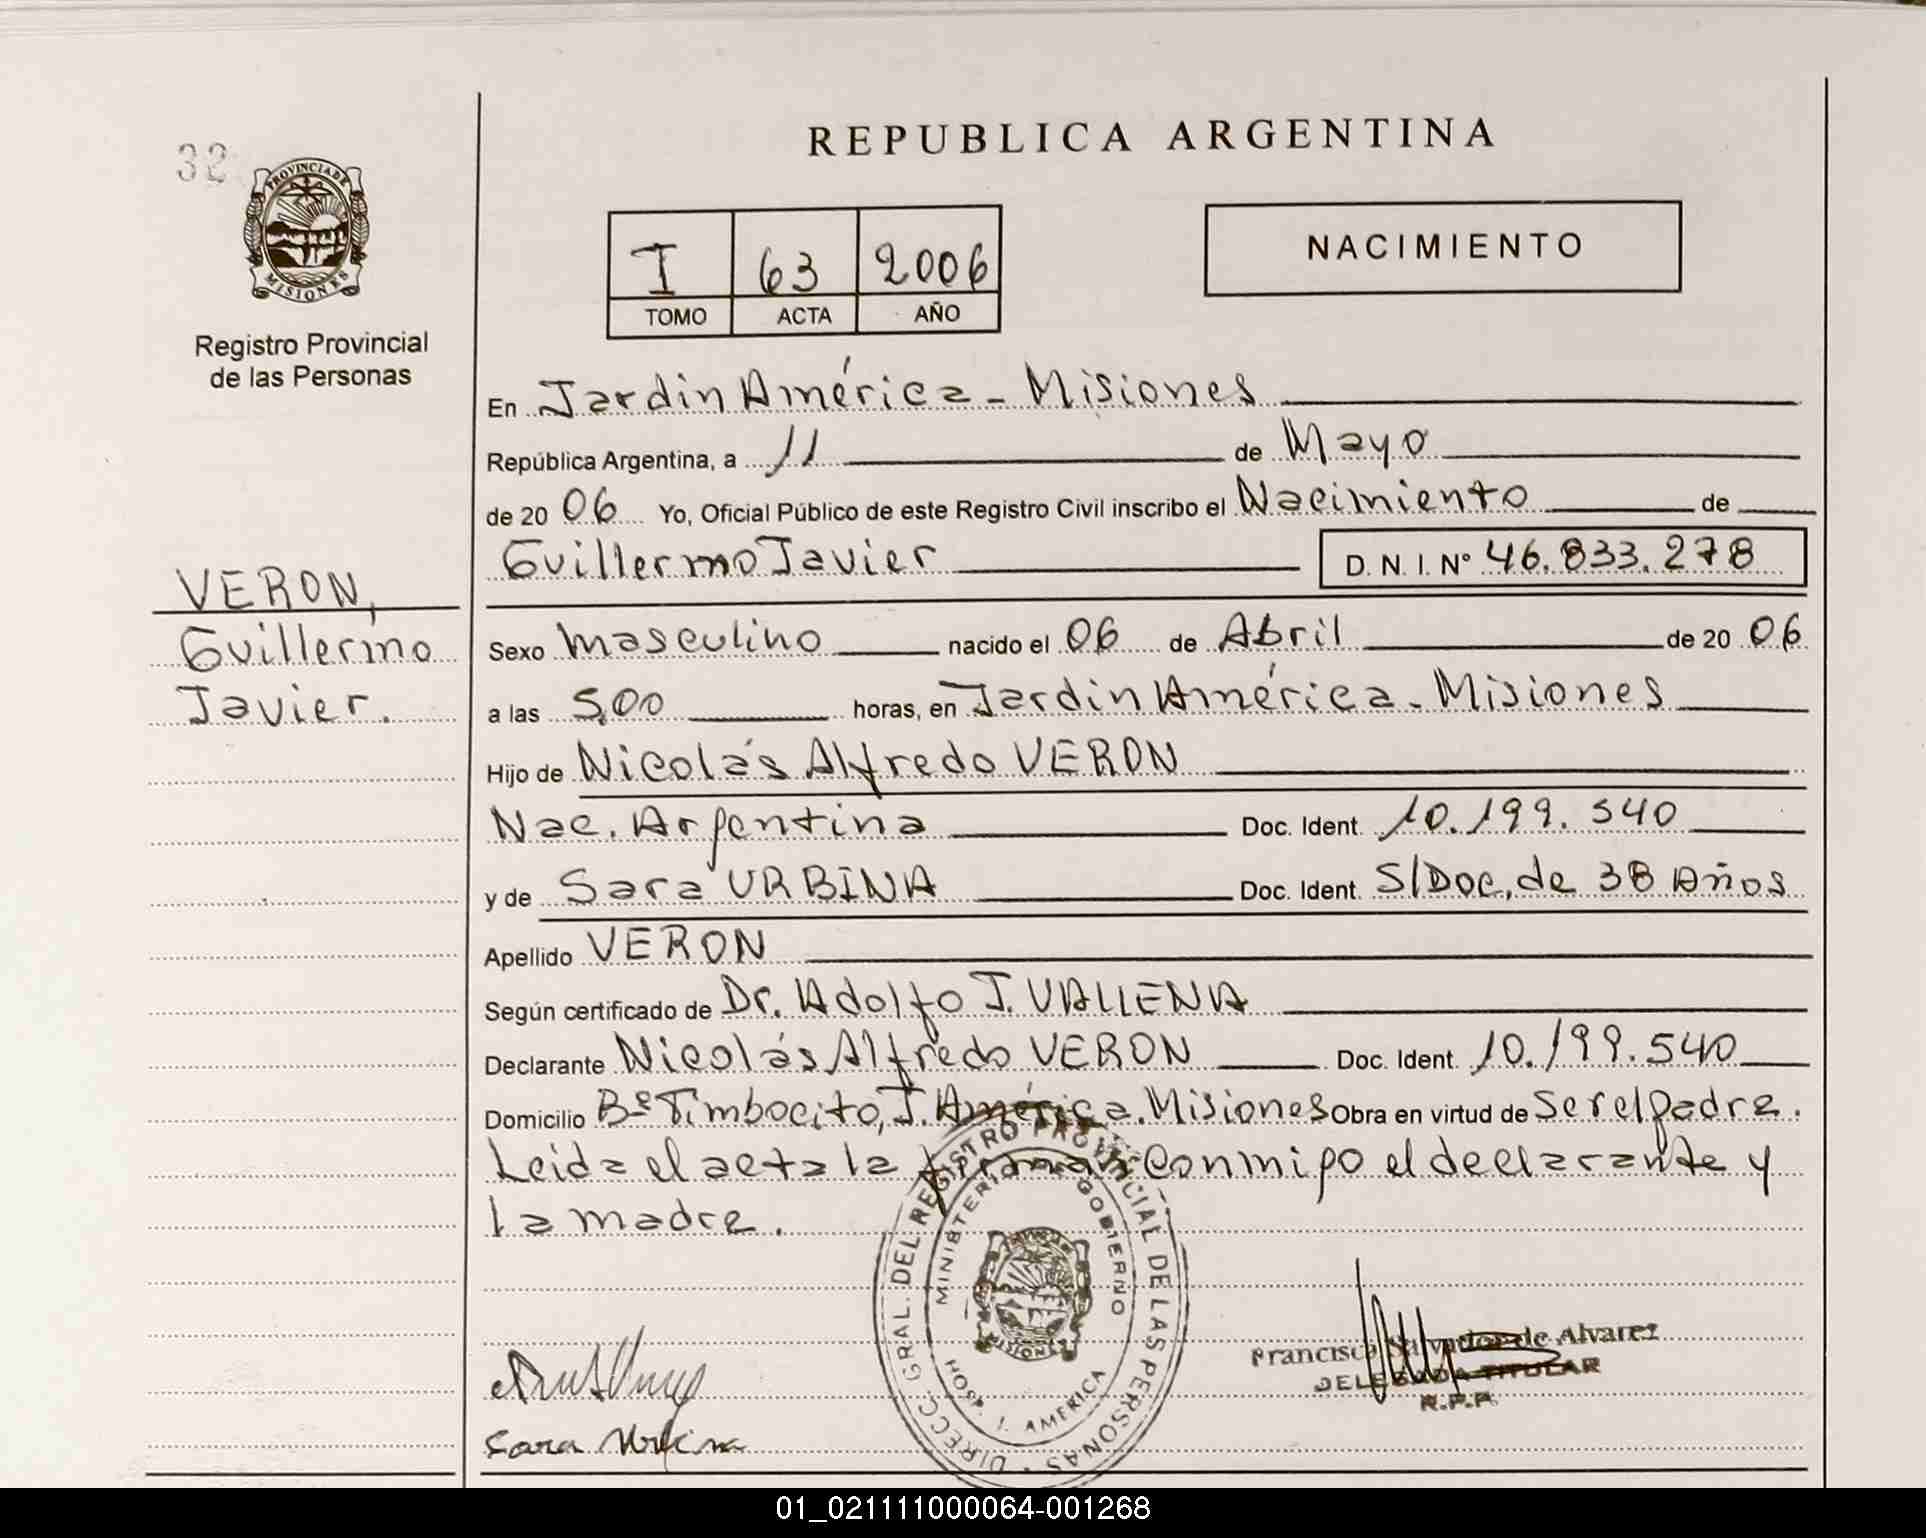 REPUBLICA ARGENTINA
32
PROVINCIA DE
MISIONES
Registro Provincial
de las Personas
I 63 2006
TOMO ACTA AÑO
NACIMIENTO
En Jardin América - Misiones
República Argentina, a 11 de Mayo
de 20 06 Yo, Oficial Público de este Registro Civil inscribo el Nacimiento de
Guillermo Javier D. N. I. Nº 46.833.278
VERON,
Guillermo
Javier.
Sexo Masculino nacido el 06 de Abril de 20 06
a las 5,00 horas, en Jardin América - Misiones
Hijo de Nicolás Alfredo VERON
Nac. Argentina Doc. Ident. 10.199.540
y de Sara URBINA Doc. Ident. S/Doc, de 38 Años
Apellido VERON
Según certificado de Dr. Adolfo J. VALLENA
Declarante Nicolás Alfredo VERON Doc. Ident. 10.199.540
Domicilio Bº Timbocito, J. América. Misiones Obra en virtud de Ser el padre.
Leida el acta la firman conmigo el declarante y
la madre.
DIRECC. GRAL. DEL REGISTRO PROVINCIAL DE LAS PERSONAS
MINISTERIO GOBIERNO
HOSP. J. AMERICA
MISIONES
Francisco Salvador de Alvarez
DELEGADA TITULAR
R.P.P.
Sara Urbina
01_021111000064-001268